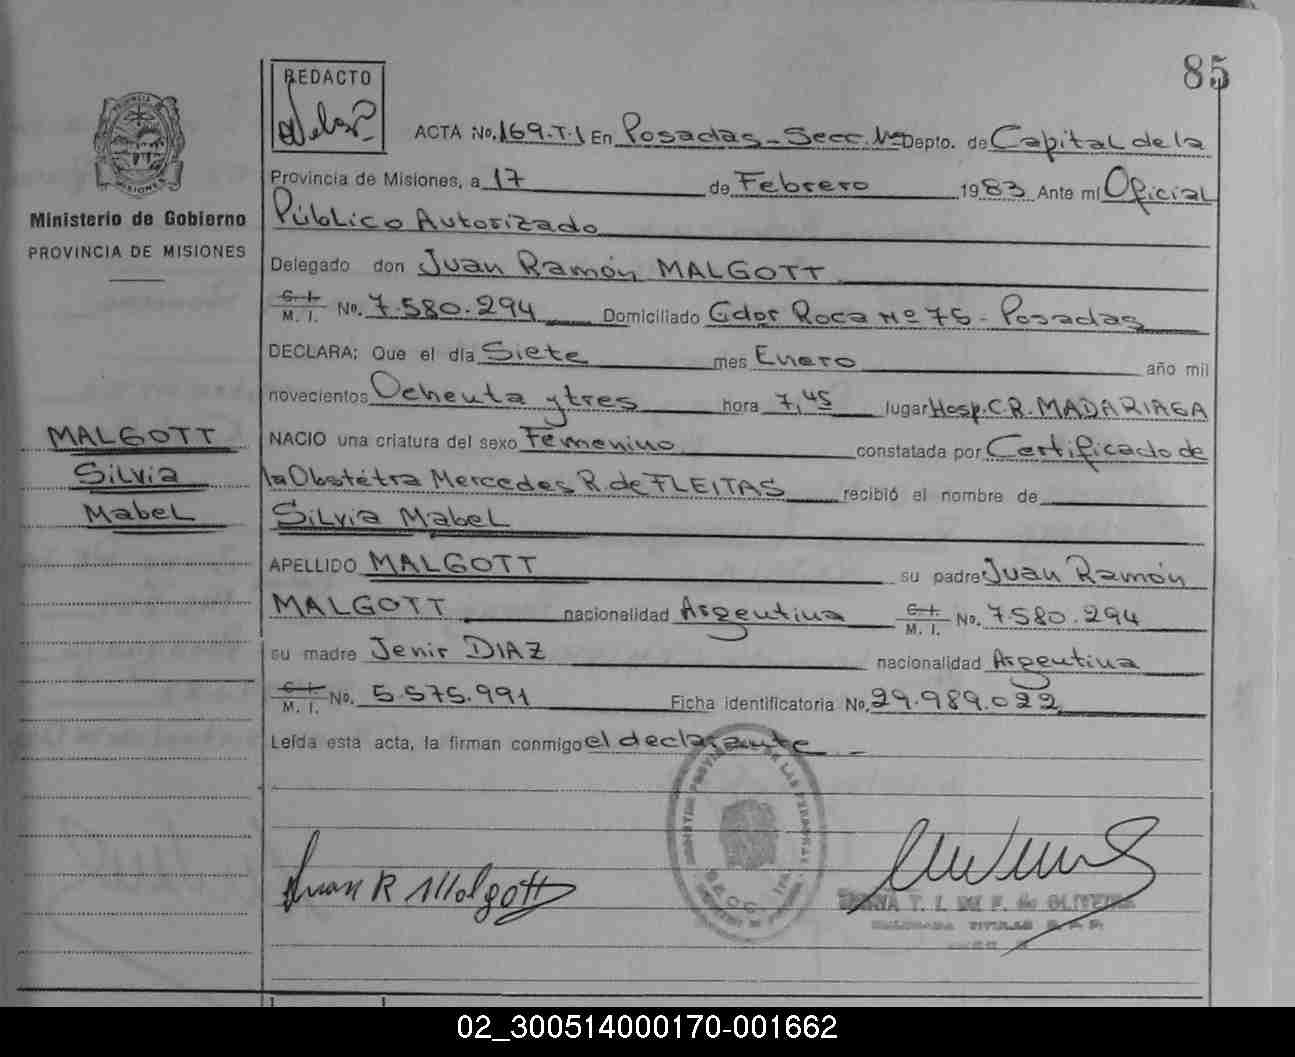 85
REDACTO
ACTA No. 169-T-1 En Posadas - Secc. 1ra Depto. de Capital de la
Provincia de Misiones, a 17 de Febrero 1983 Ante mí Oficial
Público Autorizado
Delegado don Juan Ramón MALGOTT
C. I. M. I. No. 7.580.294 Domiciliado Gdor Roca Nº 75 - Posadas
DECLARA: Que el día Siete mes Enero año mil
novecientos Ochenta y tres hora 7,45 lugar Hosp. C.R. MADARIAGA
NACIO una criatura del sexo Femenino constatada por Certificado de
la Obstétra Mercedes R. de FLEITAS recibió el nombre de
Silvia Mabel
APELLIDO MALGOTT su padre Juan Ramón
MALGOTT nacionalidad Argentina C. I. M. I. No. 7.580.294
su madre Jenir DIAZ nacionalidad Argentina
C. I. M. I. No. 5.575.991 Ficha identificatoria No. 29.989.022
Leída esta acta, la firman conmigo el declarante
Juan R Malgott
PROVINCIA DE MISIONES
Ministerio de Gobierno
PROVINCIA DE MISIONES
MALGOTT
Silvia
Mabel
T. I. DE F. de OLIVEIRA
02_300514000170-001662